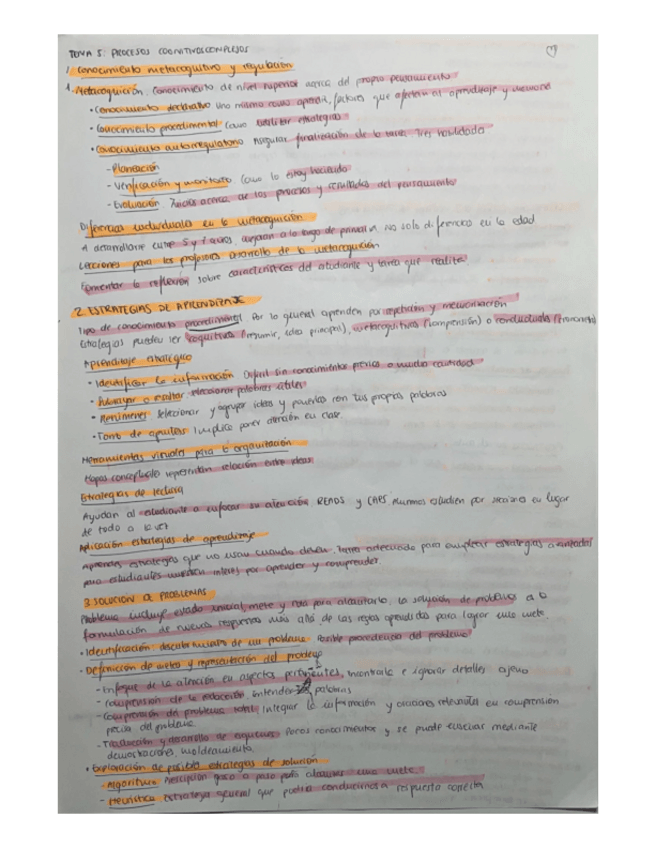 TEMA 5: PROCESOS COGNITIVOS COMPLEJOS
1. Conocimiento metacognitivo y regulación
1. Metacognición. Conocimiento de nivel superior acerca del propio pensamiento
• Conocimiento declarativo Uno mismo como aprendiz, factores que afectan al aprendizaje y memoria
• Conocimiento procedimental Como utilizar estrategias
• Conocimiento autorregulatorio Asegurar finalización de la tarea. Tres habilidades
- Planeación
- Verificación y monitoreo Como lo estoy haciendo
- Evaluación Juicios acerca de los procesos y resultados del pensamiento
Diferencias individuales en la metacognición
A desarrollarse entre 5 y 7 años, mejoran a lo largo de primaria. No solo diferencias en la edad
Lecciones para los profesores desarrollo de la metacognición
Fomentar la reflexión sobre características del estudiante y tarea que realiza.
2. ESTRATEGIAS DE APRENDIZAJE
Tipo de conocimiento procedimental. Por lo general aprenden por repetición y memorización
Estrategias pueden ser cognitivas (resumir, idea principal), metacognitivas (comprensión) o conductuales
Aprendizaje estratégico
• Identificar la información Difícil sin conocimientos previos o mucha cantidad
• Subrayar o resaltar seleccionar palabras útiles
• Resúmenes seleccionar y agrupar ideas y ponerlas con tus propias palabras
• Toma de apuntes Implica poner atención en clase.
Herramientas visuales para la organización
Mapas conceptuales representan relación entre ideas
Estrategias de lectura
Ayudan al estudiante a enfocar su atención READS y CAPS. Alumnos estudien por secciones en lugar
de todo a la vez
Aplicación estrategias de aprendizaje
Aprenden estrategias que no usan cuando deben. Tarea adecuada para emplear estrategias avanzadas
para estudiantes muestren interés por aprender y comprender.
3. SOLUCIÓN DE PROBLEMAS
Problema incluye estado inicial, meta y ruta para alcanzarlo. La solución de problemas a la
formulación de nuevas respuestas más allá de las reglas aprendidas para lograr una meta.
• Identificación: descubrimiento de un problema. Posible procedencia del problema
- Definición de metas y representación del problema
- Enfoque de la atención en aspectos pertinentes, encontrarlo e ignorar detalles ajenos
- Comprensión de la redacción, entender palabras
- Comprensión del problema total, Integrar la información y oraciones relevantes en comprensión
precisa del problema.
- Traducción y desarrollo de esquemas Pocos conocimientos y se puede enseñar mediante
demostraciones, moldeamiento.
• Exploración de posibles estrategias de solución
- Algoritmo Descripción paso a paso para alcanzar una meta.
- Heurística Estrategia general que podría conducirnos a respuesta correcta